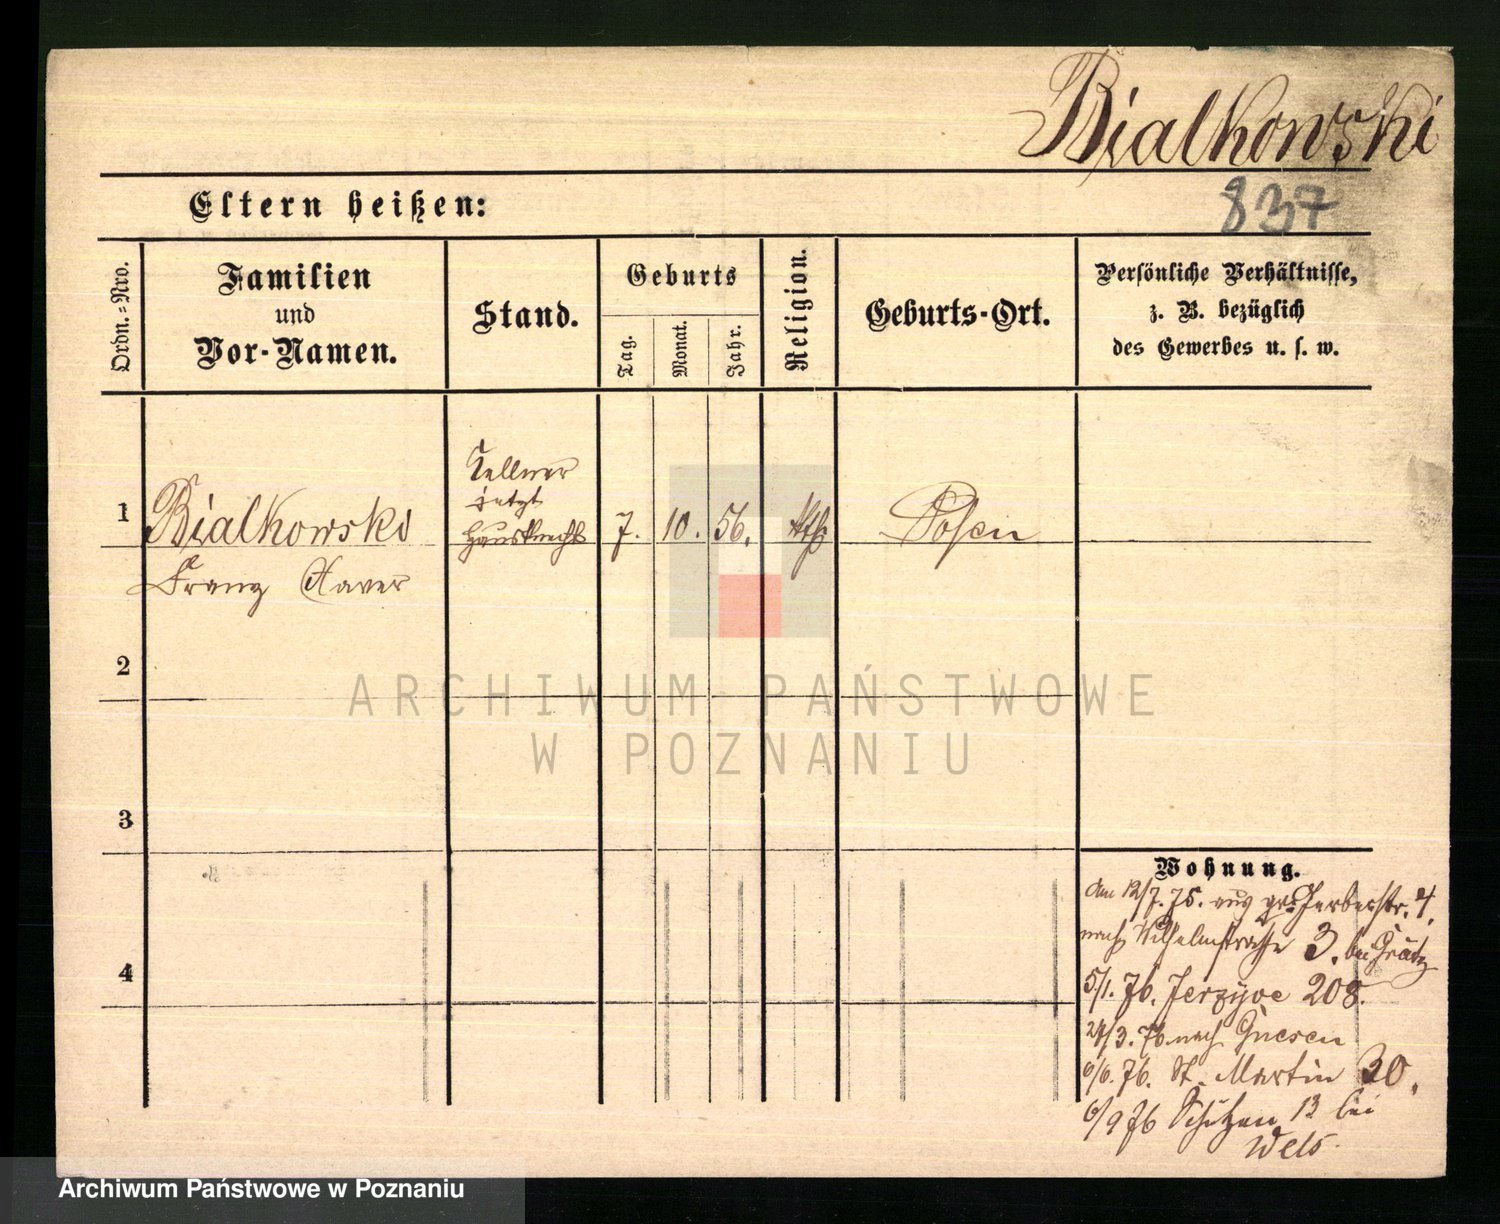 Bialkowski
837
Eltern heißen:
Ordn.-Nro.
Familien
und
Vor-Namen.
Stand.
Geburts
Tag.
Monat.
Jahr.
Religion.
Geburts-Ort.
Persönliche Verhältnisse,
z. B. bezüglich
des Gewerbes u. s. w.
1
Bialkowski
Franz Xaver
Kellner
jetzt
Hausknecht
7.
10.
56.
kth
Posen
2
3
4
Wohnung.
am 12/7. 75. aus gr. Gerberstr. 4.
nach Wilhelmstraße 3. bei Grätz
5/1. 76. Jerzyce 208.
24/3. 76. nach Gnesen
6/6. 76. St. Martin 30.
6/9 76 Schützen 13 bei
Wels.
ARCHIWUM PAŃSTWOWE
W POZNANIU
Archiwum Państwowe w Poznaniu